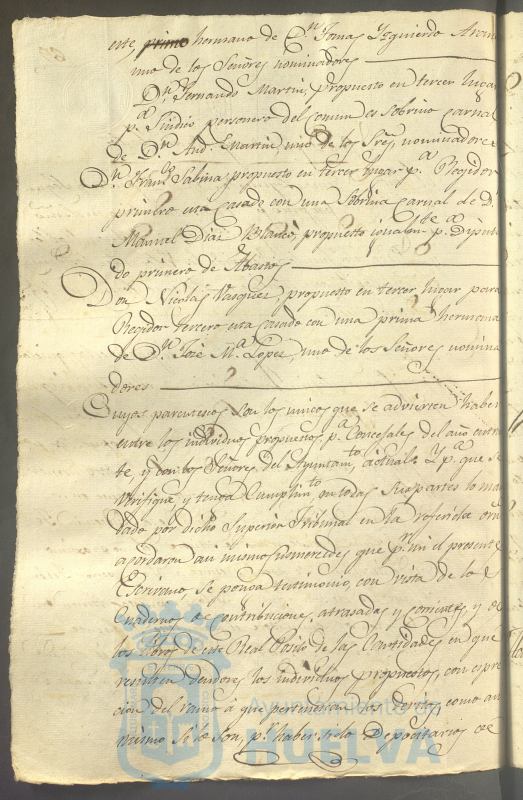 este, primo hermano de Dn. Tomas Izquierdo
uno de los Señores nominadores
Dn. Fernando Martin, propuesto en tercer lugar
pa. Sindico personero del comun es sobrino carnal
de Dn. And. Martin uno de los Sres. nominadores
Dn. Franco. Sabina propuesto en tercer lugar pa. Regidor
primero esta casado con una Sobrina carnal de D.
Manuel Diaz Blanco, propuesto igualmte. pa. Diputa
do primero de Abastos
Don Nicolas Vasquez, propuesto en tercer lugar para
Regidor tercero esta casado con una prima hermana
de Dn. Jose Ma. Lopez, uno de los Señores nomina
dores
Cuyos parentescos son los unicos que se advierten haber
entre los individuos propuestos pa. Concejales del año entran
te, y con los Señores del Ayuntamto. actual. Y pa. que se
verifique y tenga cumplimto. en todas sus partes lo man
dado por dicho Superior Tribunal en la referida orn
acordaron asi mismo sus mercedes que pr. mi el presente
Escribano se ponga testimonio, con vista de los
Cuadernos de contribuciones atrasadas y corrientes, y de
los libros de este Real Posito de las Cantidades en que
resulten deudores los individuos propuestos, con espre
cion del ramo á que pertenezcan los devitos, como asi
mismo si lo son, pr. haber sido Depositarios de
Ayuntamiento
HUELVA